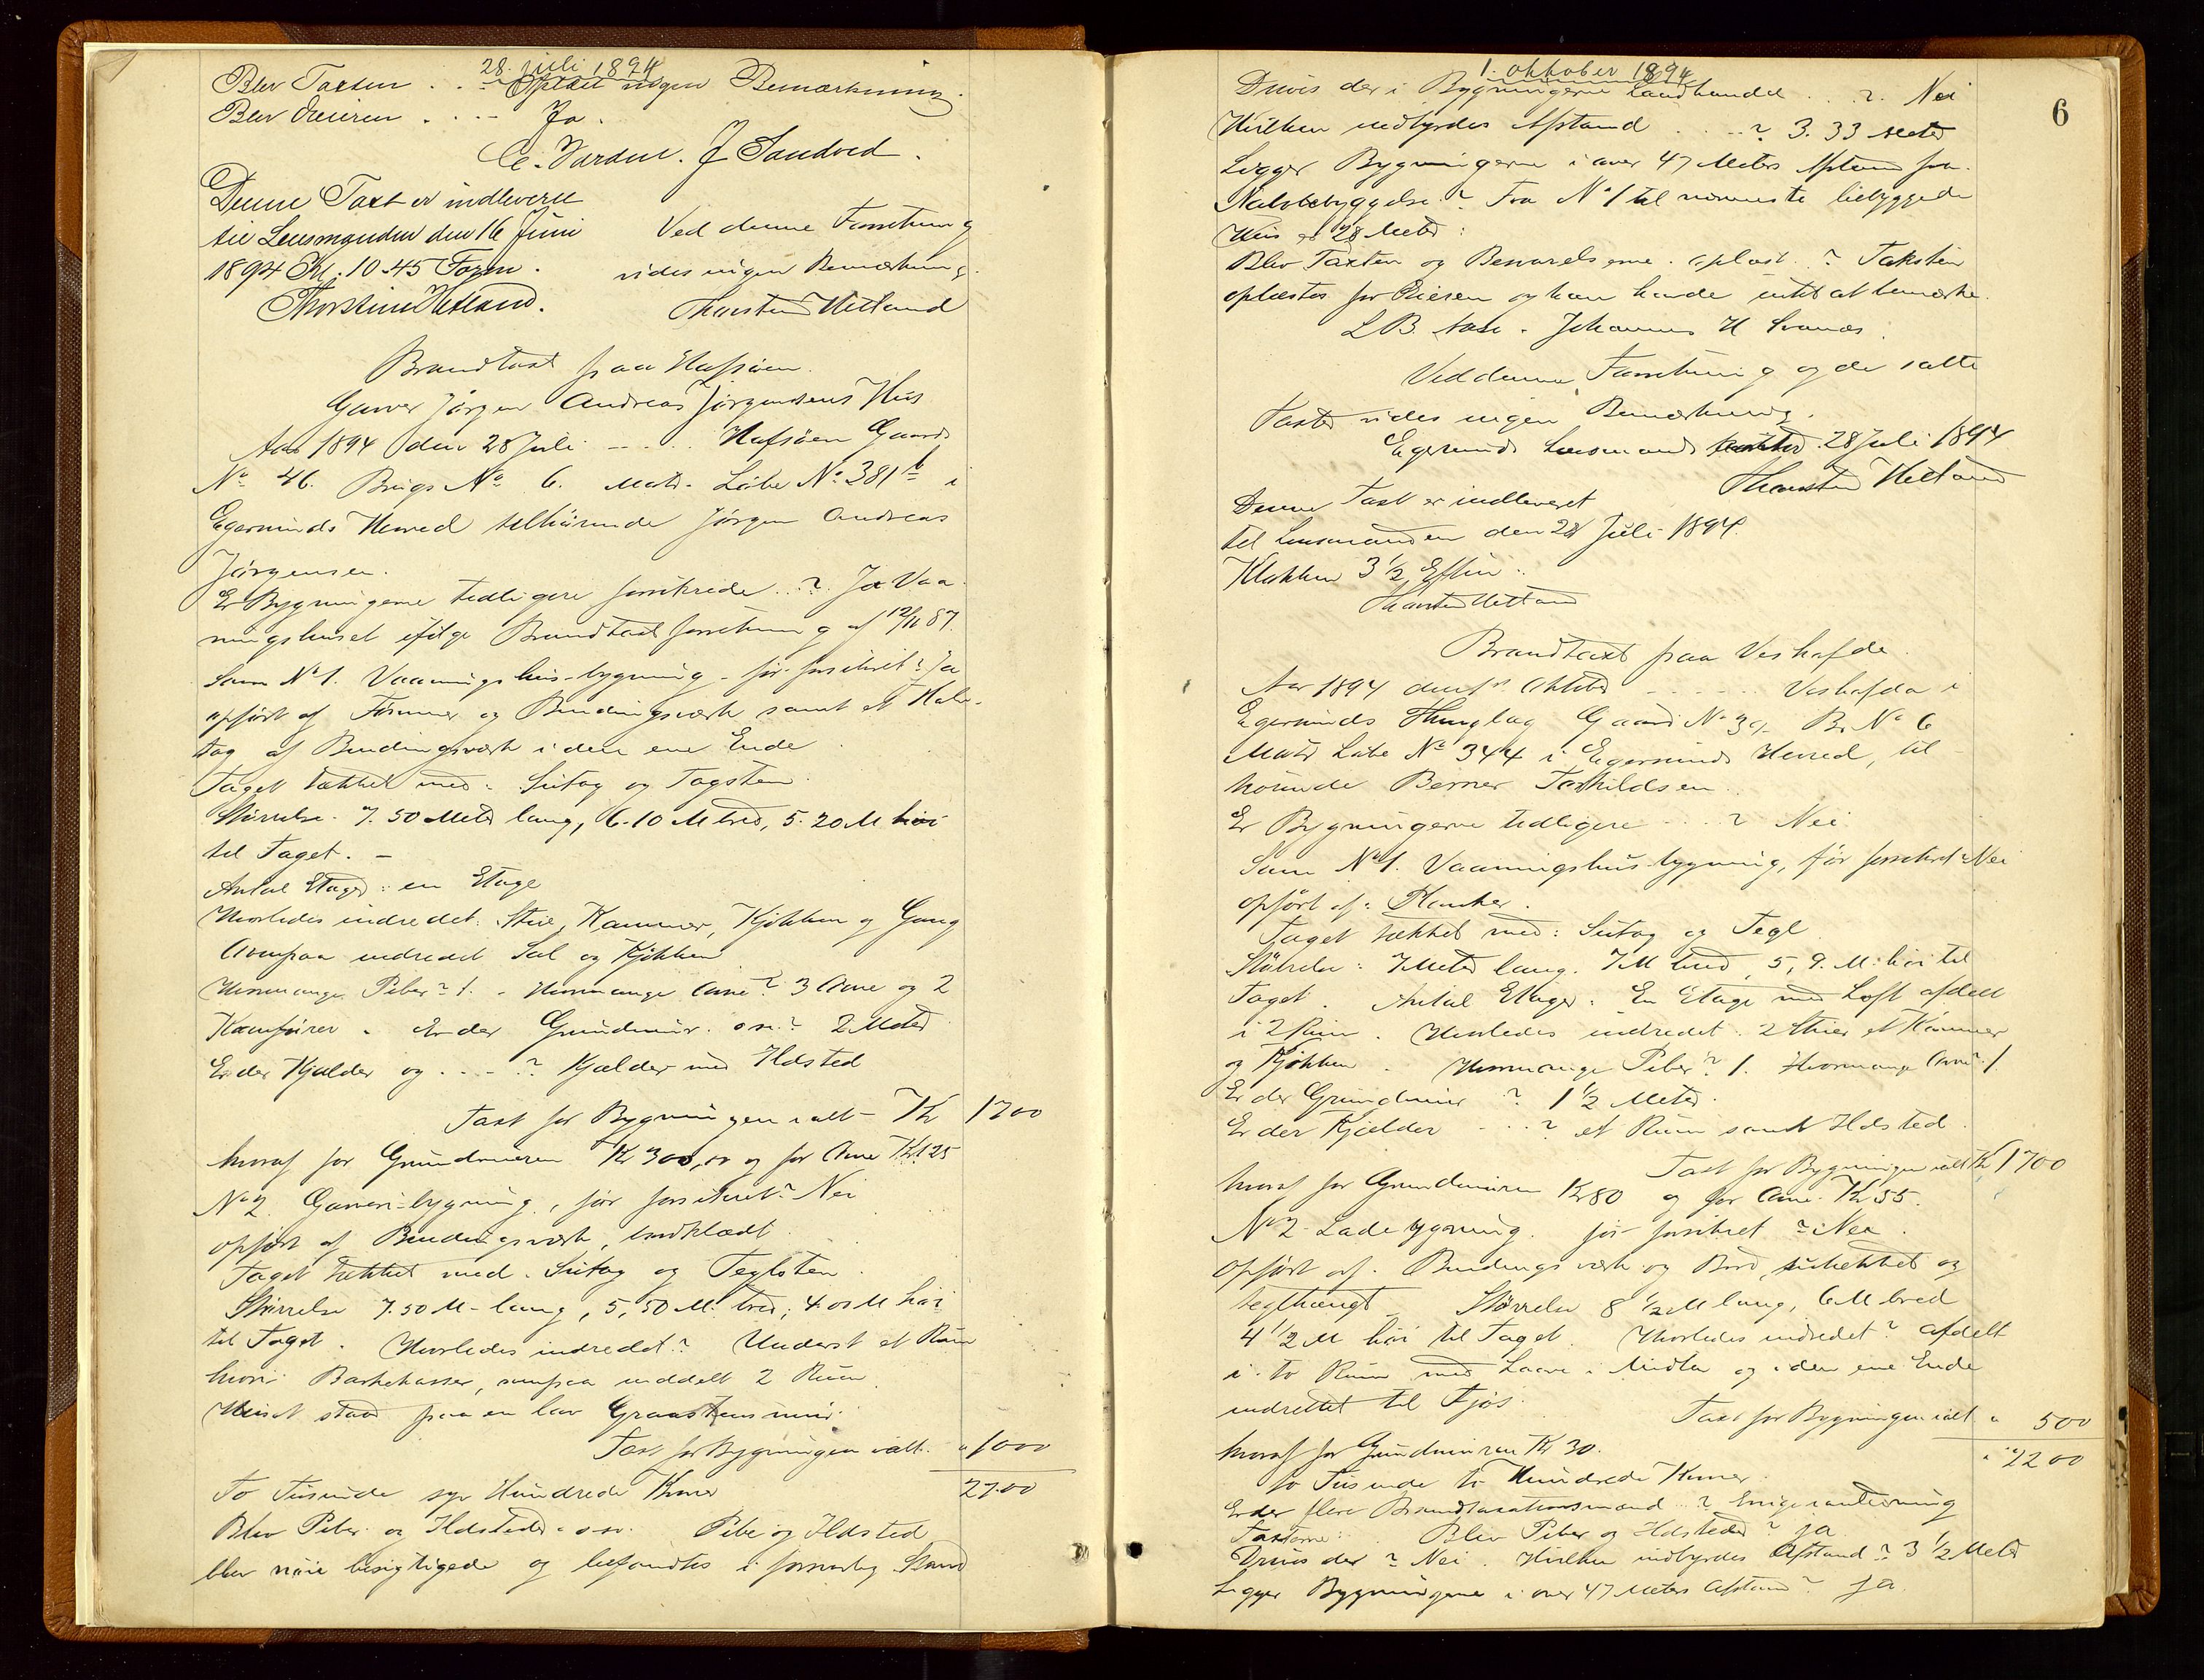 28. juli 1894
Blev Taxten . . - Oplæst ingen Bemærkning.
Blev Eieren . . - Ja.
C. Varden. J Sandved.
Denne Taxt er indleveret
til Lensmanden den 16 Juni
1894 Kl. 10.45 Form.
Thorstein Hetland.
Ved denne Forretning
vides ingen Bemærkning.
Thorsten Hetland
Brandtaxt paa Hafsøen.
Garver Jørgen Andreas Jørgensens Hus
Aar 1894 den 28 Juli - - . . . Hafsøen Gaards
No 46. Brugs No 6. Matr. Løbe No 381 b i
Egersunds Herred tilhørende Jørgen Andreas
Jørgensen.
Er Bygningerne tidligere forsikrede . . ? Ja Vaa-
ningshuset ifølge Brandtaxtforretning af 12/11 87.
Som No 1. Vaaningshus-bygning - før forsikret? Ja
opført af Tømmer og Bindingsværk samt et Halv-
tag af Bindingsværk i den ene Ende
Taget tækket med: Sutag og Tagsten.
Størrelse. 7.50 Meter lang, 6.10 M bred, 5.20 M høi
til Taget. -
Antal Etager: en Etage
Hvorledes indredet: Stue, Kammer, Kjøkken og Gang
Ovenpaa indredet Sal og Kjøkken
Hvormange Piber? 1. - Hvormange Ovne? 3 Ovne og 2
Komfører. Er der Grundmur. o s v? 2 Meter
Er der Kjælder og . . - ? Kjælder med Ildsted
Taxt for Bygningen ialt - Kr 1700
hvoraf for Grundmuren Kr 300,00 og for Ovne Kr 125
No 2. Garveri-bygning, før forsikret? Nei
opført af Bindingsværk, bordklædt
Taget tækket med. Sutag og Teglsten.
Størrelse 7.50 M- lang, 5,50 M. bred; 4.00 M høi
til Taget. Hvorledes indredet? Underst et Rum
hvori Barkekasser, ovenpaa inddelt 2 Rum
Huset staar paa en lav Graastensmur.
Taxt for Bygningen ialt. " 1000
2700
To Tusinde syv Hundrede Kroner
Blev Piber og Ildsteder o sv. Pibe og Ildsted
blev nøie besigtigede og befandtes i forsvarlig Stand
6
1. oktober 1894
Drives der i Bygningerne Landhandel . . ?. Nei
Hvilken indbyrdes Afstand . . . - ? 3.33 Meter
Ligger Bygningerne i over 47 Meters Afstand fra
Nabobebyggelse? Fra No 1 til nærmeste bebyggede
Hus er 28 Meter:
Blev Taxten og Besvarelserne oplæst. ? Taksten
oplæstes for Eieren og han havde intet at bemærke.
L B Aase. Johannes H Svanæs
Ved denne Forretning og de satte
Taxter vides ingen Bemærkning.
Egersunds Lensmands 28 Juli 1894
Thorsten Hetland
Denne Taxt er indleveret
til Lensmanden den 28 Juli 1894.
Klokken 3 1/2 Efterm.
Thorsten Hetland
Brandtaxt paa Veshafde.
Aar 1894 den 1st Oktober - . . . . . Veshafda i
Egersunds Thinglag Gaards No 39. Br. No 6
Matr Løbe No 344 i Egersunds Herred, til-
hørende Berner Torkildsen.
Er Bygningerne tidligere - . . ? Nei
Som No 1. Vaaningshus-bygning, før forsikret? Nei
opført af: Planker.
Taget tækket med: Sutag og Tegl
Størrelse: 7 Meter lang. 7 M bred, 5,9. M. høi til
Taget. Antal Etager: En Etage med Loft afdelt
i 2 Rum. Hvorledes indredet: 2 Stuer et Kammer
og Kjøkken - Hvormange Piber? 1. Hvormange Ovne? 1
Er der Grundmur ? 1 1/2 Meter.
Er der Kjælder - . . ? et Rum samt Ildsted.
Taxt for Bygningen ialt Kr 1700
hvoraf for Grundmuren Kr 80 og for Ovne. Kr 55.
No 2- Ladebygning. før forsikret ? Nei.
Opført af. Bindingsværk og Bord, sutækket og
teglhængt. Størrelse 8 1/2 M lang, 6 M bred
4 1/2 M høi til Taget. Hvorledes indredet? afdelt
i to Rum med Laave i Midten og i den ene Ende
indrettet til Fjøs.
Taxt for Bygningen ialt " 500
hvoraf for Grundmuren Kr 30.
" 2200
to Tusinde to Hundrede Kroner.
Er der flere Brandtaxationsmænd ? Enige i
Taxterne: Blev Piber og Ildsteder? ja
Drives der ? Nei. Hvilken indbyrdes Afstand? 3 1/2 Meter
Ligger Bygningerne i over 47 Meters Afstand? ja